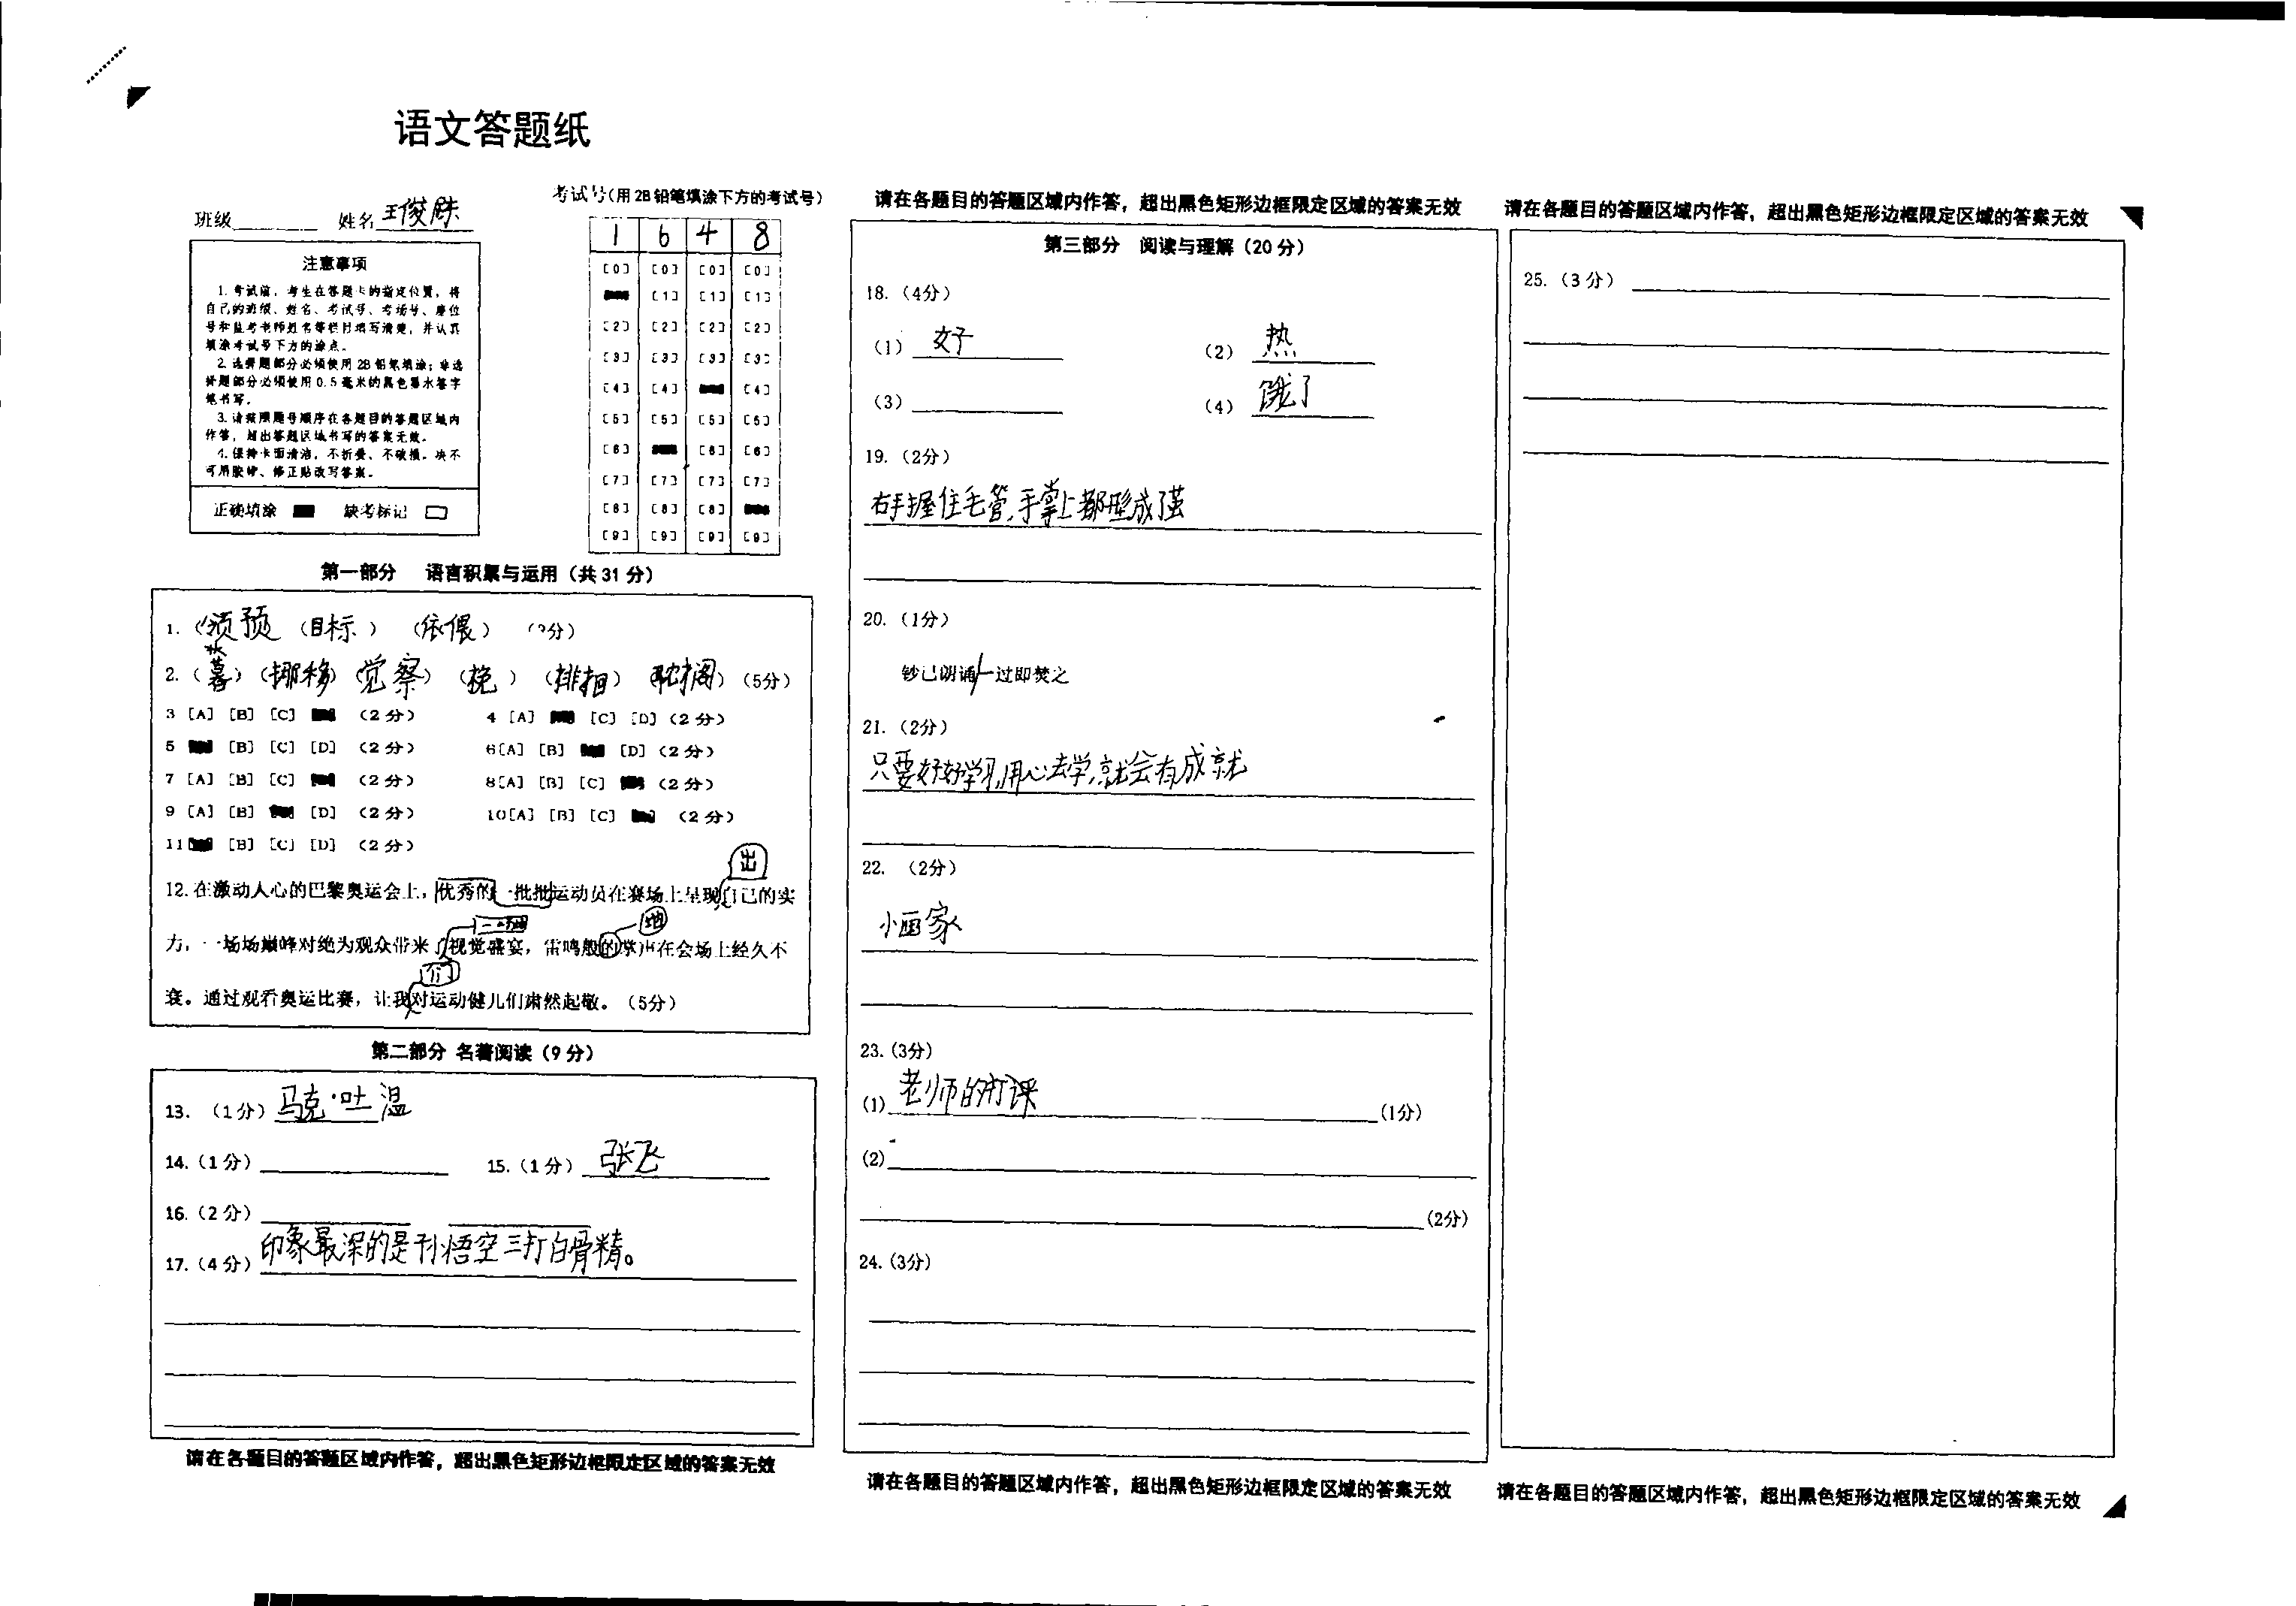 语文答题纸
班级 姓名 王俊
考试号(用2B铅笔填涂下方的考试号)
1 6 4 8
注意事项
1.考试前,考生在答题卡的指定位置,将
自己的班级、姓名、考试号、考场号、座位
号和监考老师姓名等栏目填写清楚,并认真
填涂考试号下方的涂点。
2.选择题部分必须使用2B铅笔填涂;非选
择题部分必须使用0.5毫米的黑色墨水签字
笔书写。
3.请按照题号顺序在各题目的答题区域内
作答,超出答题区域书写的答案无效。
4.保持卡面清洁,不折叠、不破损。决不
可用胶带、修正贴改写答案。
正确填涂 缺考标记
[0] [0] [0] [0]
[1] [1] [1]
[2] [2] [2] [2]
[3] [3] [3] [3]
[4] [4] [4]
[5] [5] [5] [5]
[6] [6] [6]
[7] [7] [7] [7]
[8] [8] [8]
[9] [9] [9] [9]
第一部分 语言积累与运用(共31分)
1.( 预 (目标) (依偎) ( 分)
2.( ) (挪移) (觉察) (挽) (排 ) 耽搁) (5分)
3 [A] [B] [C] (2分) 4 [A] [C] [D] (2分)
5 [B] [C] [D] (2分) 6[A] [B] [D] (2分)
7 [A] [B] [C] (2分) 8[A] [B] [C] (2分)
9 [A] [B] [D] (2分) 10[A] [B] [C] (2分)
11 [B] [C] [D] (2分)
出
12.在激动人心的巴黎奥运会上,优秀的一批批运动员在赛场上呈现自己的实
地
力,一场场巅峰对绝为观众带来了视觉盛宴,雷鸣般的掌声在会场上经久不
们
衰。通过观看奥运比赛,让我对运动健儿们肃然起敬。(5分)
第二部分 名著阅读(9分)
13.(1分) 马克·吐温
14.(1分) 15.(1分) 张飞
16.(2分)
17.(4分) 印象最深的是 悟空三打白骨精。
请在各题目的答题区域内作答,超出黑色矩形边框限定区域的答案无效
请在各题目的答题区域内作答,超出黑色矩形边框限定区域的答案无效
第三部分 阅读与理解(20分)
18.(4分)
(1) 好 (2) 热
(3) (4) 饿了
19.(2分)
右手握住毛管,手掌上都形成了茧
20.(1分)
钞已朗诵/一过即焚之
21.(2分)
只要好好学习,用心去学,就会有成就
22.(2分)
小画家
23.(3分)
(1) 老师的 课 (1分)
(2)
(2分)
24.(3分)
请在各题目的答题区域内作答,超出黑色矩形边框限定区域的答案无效
请在各题目的答题区域内作答,超出黑色矩形边框限定区域的答案无效
25.(3分)
请在各题目的答题区域内作答,超出黑色矩形边框限定区域的答案无效